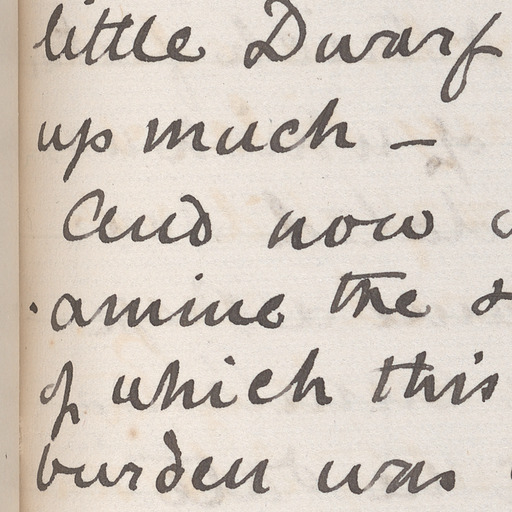 little Dwarf
up much –
And now
·amine the
of which this
burden was